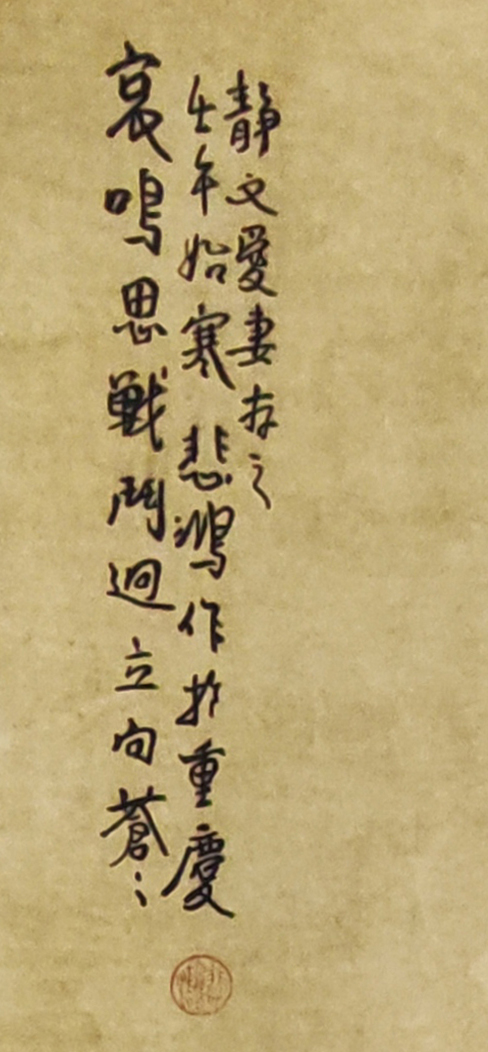 哀鳴思戰鬥迥立向蒼〻
壬午始寒 悲鴻作於重慶
靜文愛妻存之